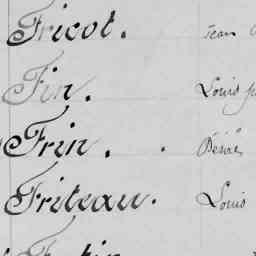 Fricot. Jean
Fin. Louis
Frin. . Désiré
Friteau. Louis